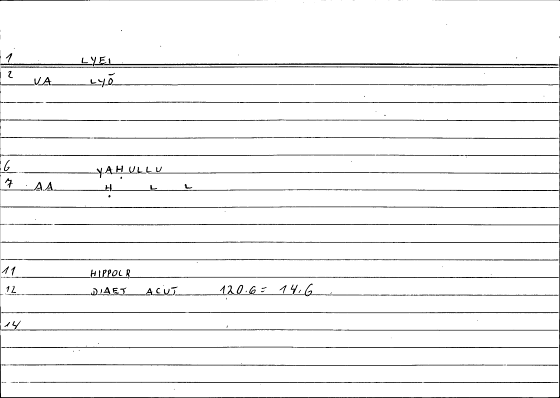 1 LYEI
2 VA LYŌ
6 YAḤULLU
7 AA Ḥ L L
11 HIPPOCR
12 DIAET ACUT 120.6 = 14.6
14